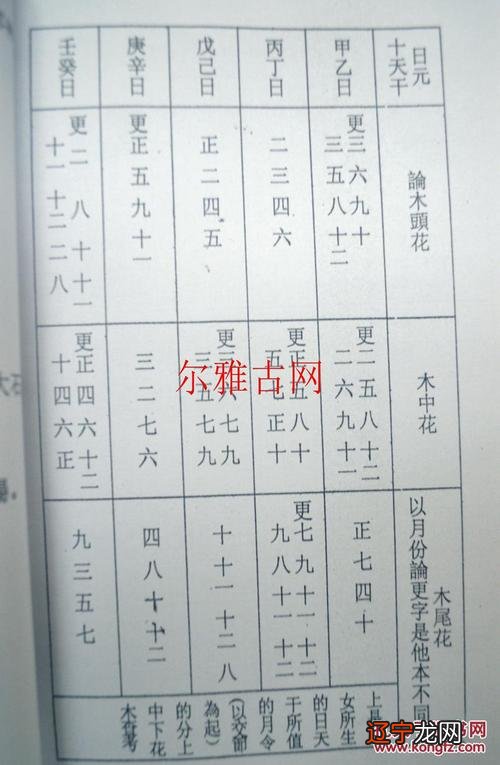 日元
十天干
甲乙日
丙丁日
戊己日
庚辛日
壬癸日
論木頭花
更三六九十
三五八十二
二三四六
正二四五
更正五九十一
更二八十十一
十一十二二八
木中花
更二五八十二
二六九十一
更正五八十
五七正十
更三六七九
三五七九
三二七六
更正四六十二
十四六正
木尾花
以月份論更字是他本不同
正七四十
更七九十一十二
九八十一十二
十十一十二八
四八十十二
九三五七
上是
女所生
的日天
干所值
的月令
(以交節
為起)
的分上
中下花
木查考
大石
尔雅古网
辽宁龙网
www.kongfz.com